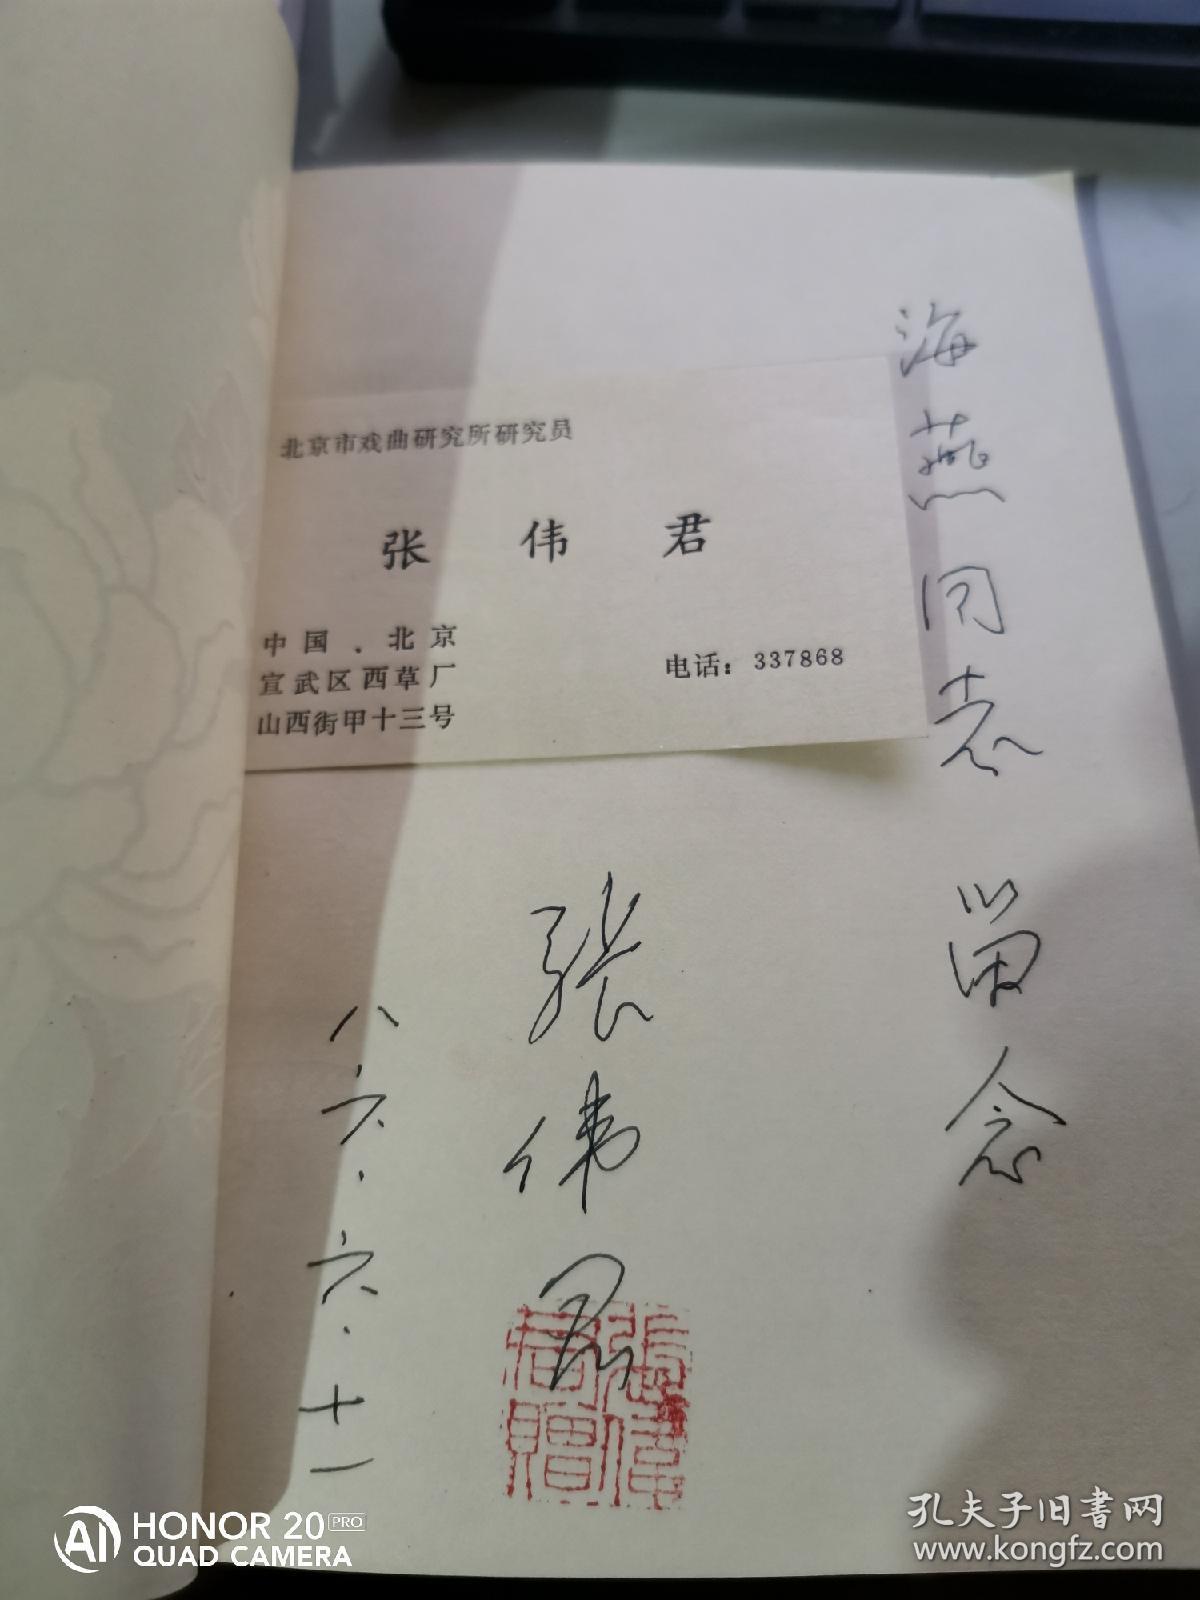 海燕同志 留念
北京市戏曲研究所研究员
张 伟 君
中国.北京
宣武区西草厂
山西街甲十三号
电话：337868
張伟君
八六.六.十一
張偉
君贈
HONOR 20 PRO
AI QUAD CAMERA
孔夫子旧书网
www.kongfz.com